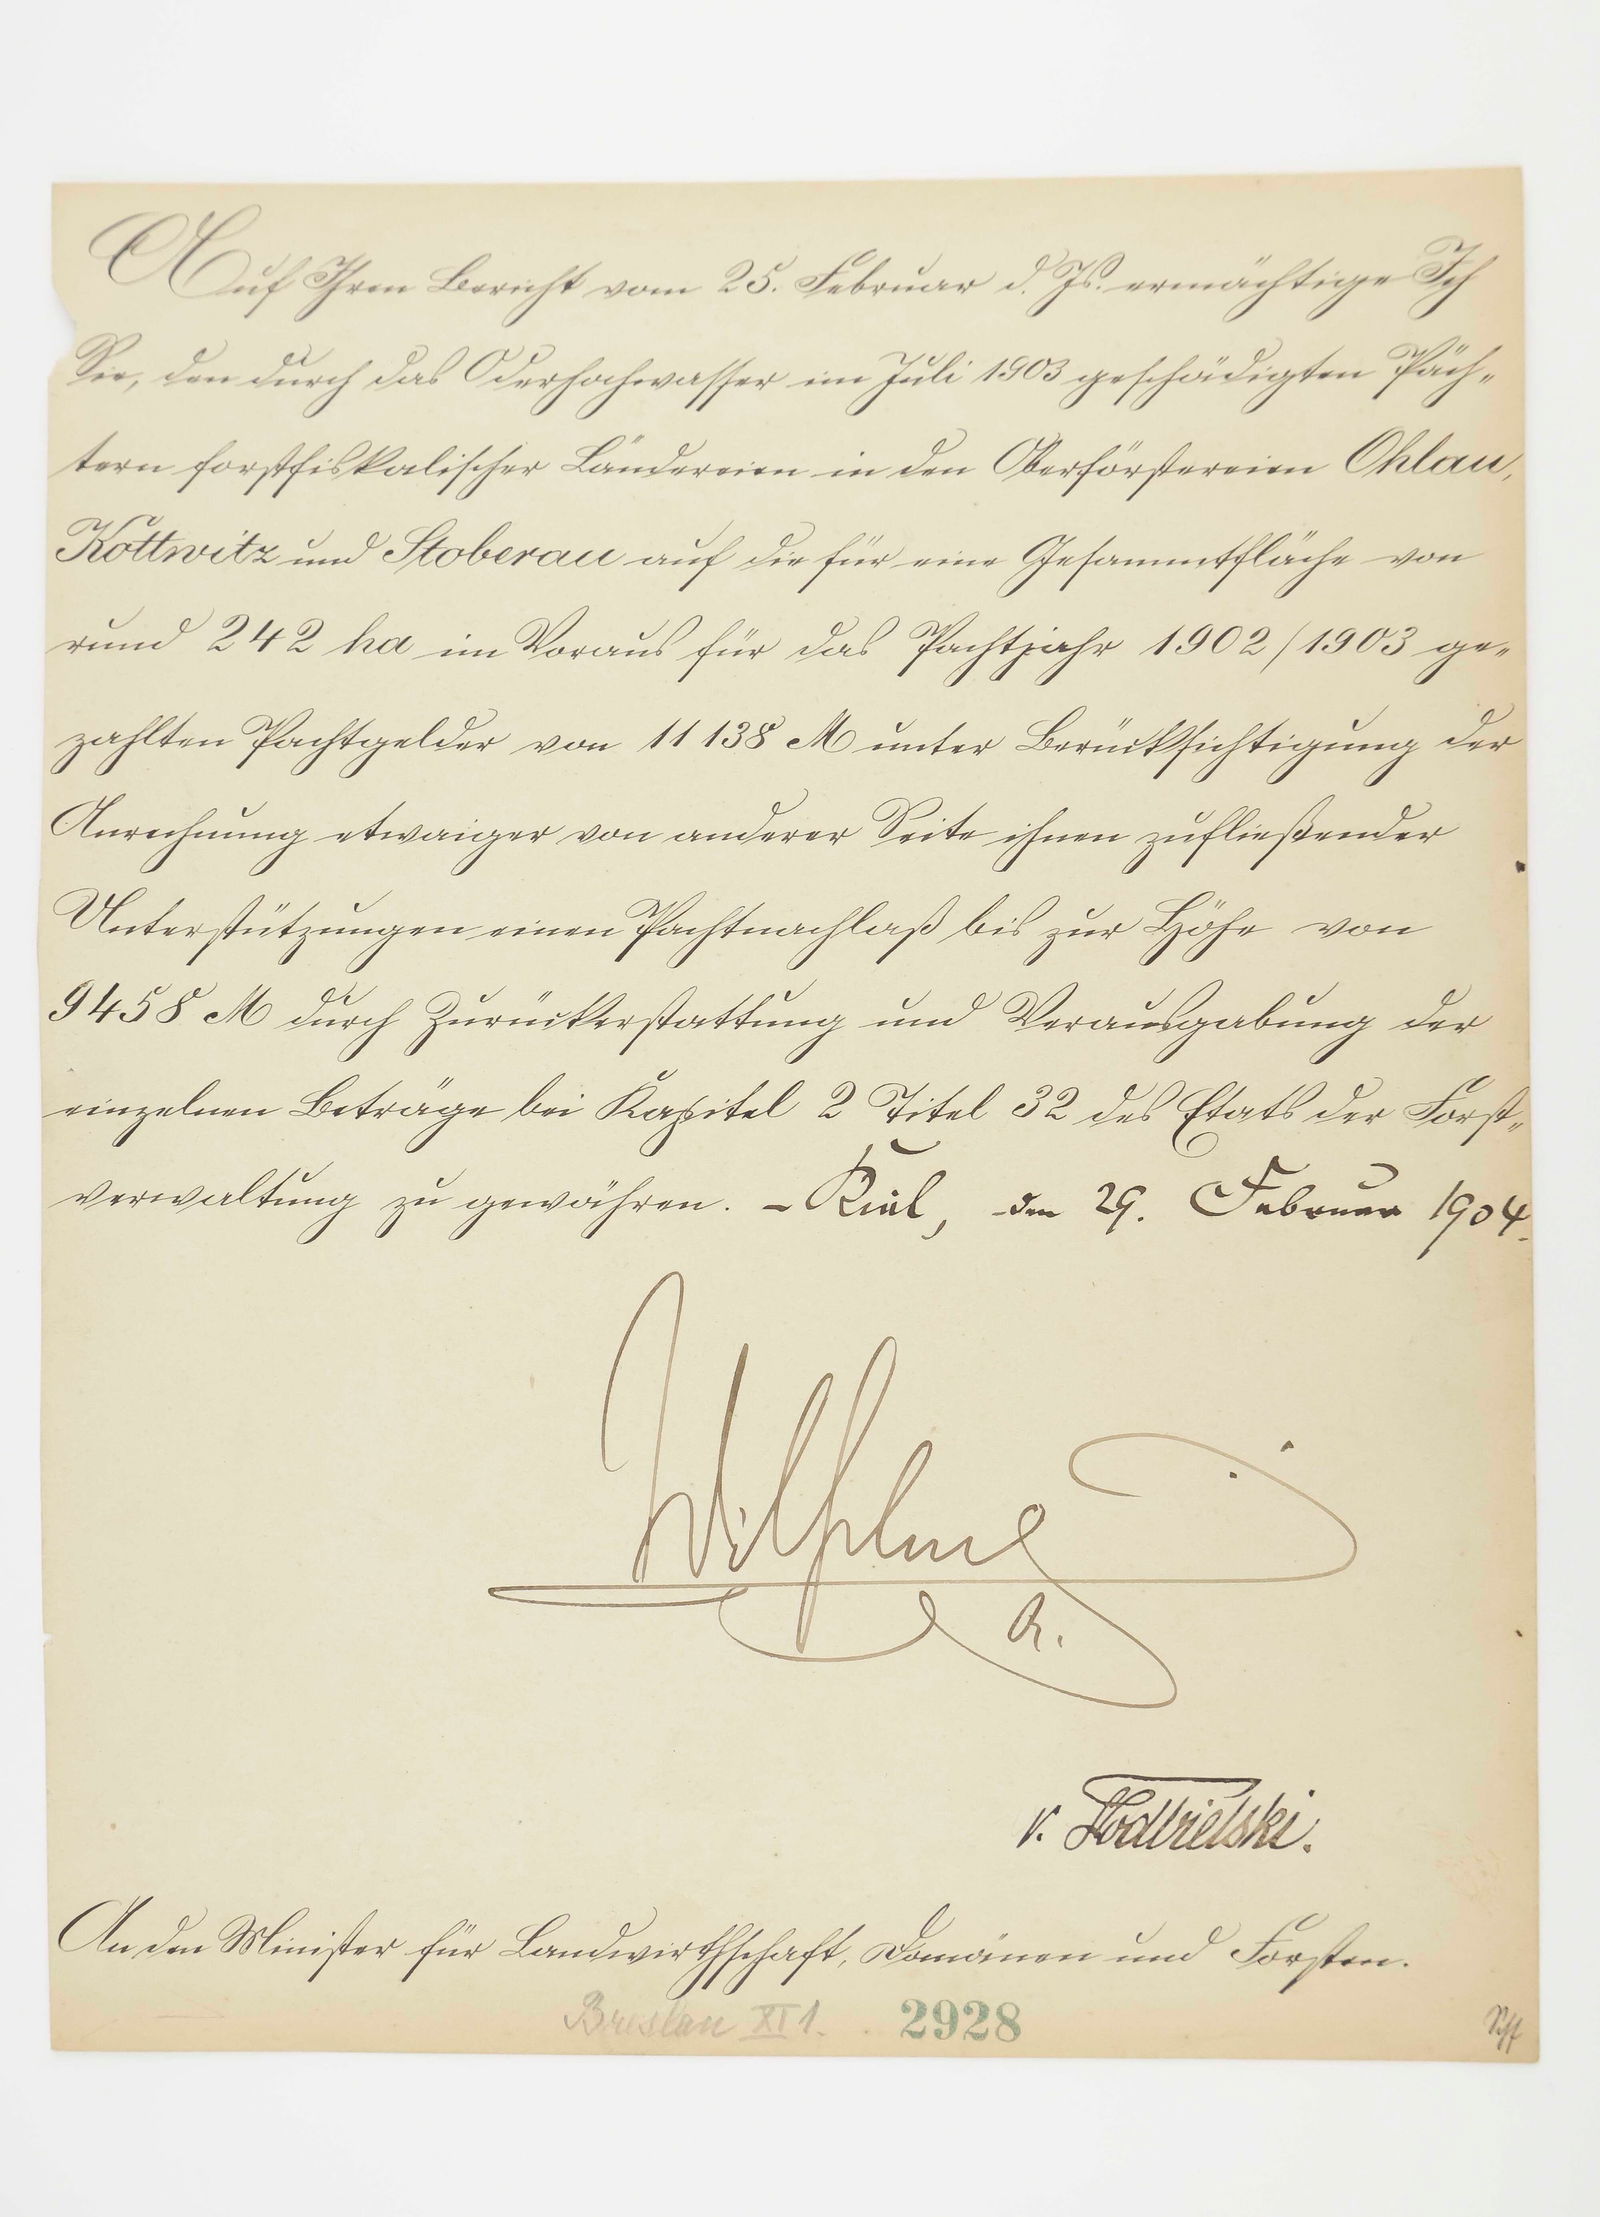 Auf Ihren Bericht vom 25. Februar d. Js. ermächtige Ich
Sie, den durch das Oderhochwasser im Juli 1903 geschädigten Päch-
tern forstfiskalischer Ländereien in den Oberförstereien Ohlau,
Kottwitz und Stoberau auf die für eine Gesammtfläche von
rund 242 ha im Voraus für das Pachtjahr 1902/1903 ge-
zahlten Pachtgelder von 11 138 M unter Berücksichtigung der
Anrechnung etwaiger von anderer Seite ihnen zufließender
Unterstützungen einen Pachtnachlaß bis zur Höhe von
9458 M durch Zurückerstattung und Verausgabung der
einzelnen Beträge bei Kapitel 2 Titel 32 des Etats der Forst-
verwaltung zu gewähren. – Kiel, den 29. Februar 1904.
Wilhelm
R.
v. Podbielski.
An den Minister für Landwirthschaft, Domänen und Forsten.
Breslau XI 1. 2928